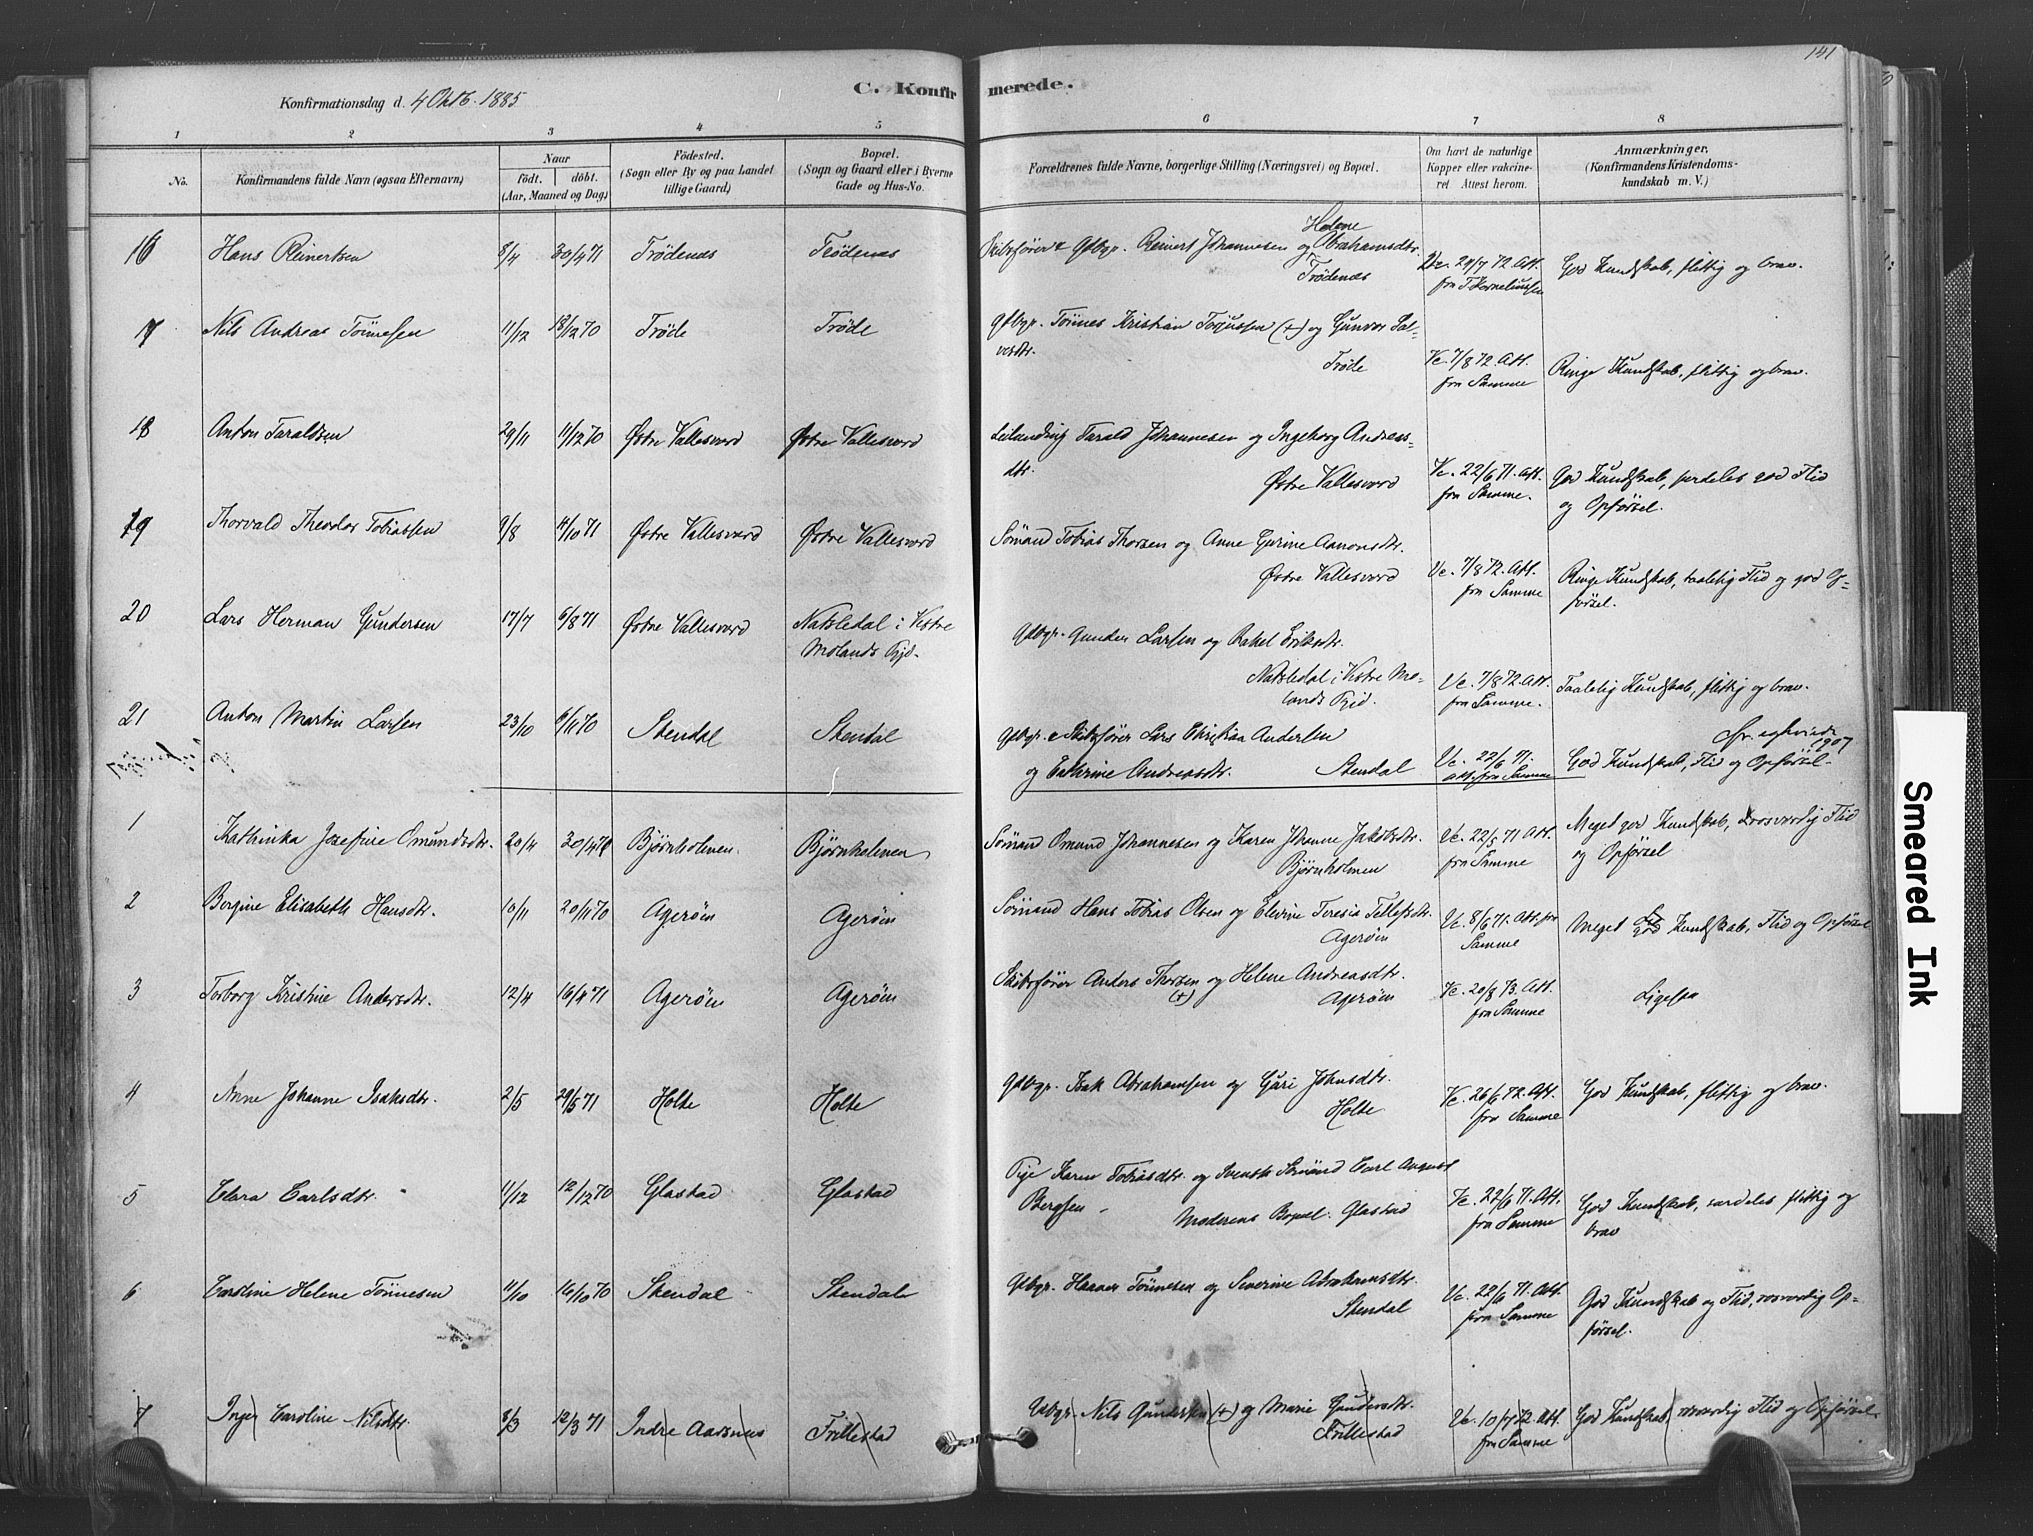 141
C. Konfirmerede.
Konfirmationsdag d. 4 Oktb. 1885
1 2 3 4 5 6 7 8
No.
Konfirmandens fulde Navn (ogsaa Efternavn)
Naar
födt. döbt.
(Aar, Maaned og Dag)
Födested.
(Sogn eller By og paa Landet
tillige Gaard)
Bopæl.
(Sogn og Gaard eller i Byerne
Gade og Hus-No.
Forældrenes fulde Navne, borgerlige Stilling (Næringsvei) og Bopæl.
Om havt de naturlige
Kopper eller vakcine-
ret Attest herom.
Anmærkninger.
(Konfirmandens Kristendoms-
kundskab m. V.)
16 Hans Reinertsen 8/4 30/4 71 Trödenæs Trödenæs Skibsförer & Gdbgr. Reinert Johannesen og Helene Abrahamsdtr. Vc. 29/7 72. Att. God Kundskab, flittig og brav.
Trödenæs fra
17 Nils Andreas Tönnesen 11/12 18/12 70 Tröde Tröde Gdbgr. Tönnes Kristian Torjussen (+) og Gunvor Sal-
vesdtr. Tröde Vc. 7/8 72. Att. fra Samme Ringe Kundskab, flittig og brav.
18 Anton Taraldsen 29/11 11/12 70 Østre Vallesværd Østre Vallesværd Leilænding Tarald Johannesen og Ingeborg Andreas-
dtr. Østre Vallesværd Vc. 22/6 71. Att. fra Samme. God Kundskab, særdeles god Flid
og Opførsel.
19 Thorvald Theodor Tobiassen 9/8 4/10 71 Østre Vallesværd Østre Vallesværd Sömand Tobias Thorsen og Anne Gurine Aanonsdtr.
Østre Vallesværd Vc. 7/8 72. Att. fra Samme Ringe Kundskab, taalelig Flid og god Op-
førsel.
20 Lars Herman Gundersen 17/7 6/8 71 Østre Vallesværd Natsledal i Vestre
Molands Gjd. Gdbgr. Gunder Larsen og Rakel Eriksdtr.
Natsledal i Vestre Mo-
lands Gjd. Vc. 7/8 72. Att. fra Samme. Taalelig Kundskab, flittig og brav.
21 Anton Martin Larsen 23/10 6/11 70 Stendal Stendal Gdbgr. & Skibsförer Lars Christian Andersen
og Cathrine Andreasdtr. Stendal Vc. 22/6 71. Att. fra Samme God Kundskab, Flid og Opførsel.
1907
1 Kathinka Josefine Omundsdtr. 20/4 30/4 71 Björnholmen Björnholmen Sömand Omund Johannesen og Karen Johanne Jakobsdtr. Vc. 22/5 71 Att. Meget god Kundskab, rosværdig Flid
Björnholmen fra Samme og Opførsel
2 Bergine Elisabeth Hansdtr. 10/11 20/11 70 Ageröen Ageröen Sömand Hans Tobias Olsen og Elevine Teresia Tellefsdtr. Vc. 8/6 71. Att. fra Meget god Kundskab, Flid og Opførsel
Ageröen Samme
3 Torborg Kristine Andersdtr. 12/4 16/4 71 Ageröen Ageröen Skibsförer Anders Thorsen (+) og Helene Andreasdtr. Vc. 20/8 73. Att. Ligesaa
Ageröen fra Samme
4 Anne Johanne Isaksdtr. 2/5 29/5 71 Holte Holte Gdbgr. Isak Abrahamsen og Guri Johnsdtr. Vc. 26/6 72. Att. God Kundskab, flittig og brav.
Holte fra Samme
5 Clara Carlsdtr. 11/12 12/12 70 Glastad Glastad Pige Karen Tobiasdtr. og Svensk Sömand Carl August
Bergsen. Moderens Bopæl. Glastad Vc. 22/6 71. Att. fra Samme God Kundskab, særdeles flittig og
brav
6 Caroline Helene Tönnesen 11/10 16/10 70 Stendal Stendal Gdbgr. Tönnesen og Severine Abrahamsdtr. Vc. 22/6 71. Att. God Kundskab og Flid, rosværdig Op-
Stendal fra Samme førsel.
7 Inger Caroline Nilsdtr. 8/3 12/3 71 Indre Aarsnes Trillestad Gdbgr. Nils Gundersen (+) og Marie Gundersdtr. Vc. 10/7 72. Att. God Kundskab, rosværdig Flid og Opførsel.
Trillestad fra Samme
Smeared Ink